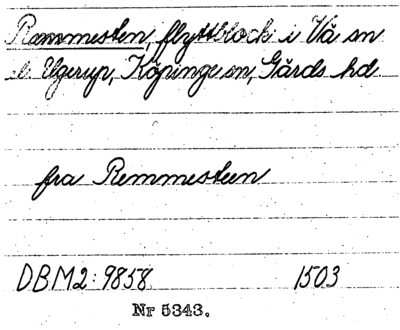 Remmesten, flyttblock i Vä sn
l. Elgerup, Köpinge sn, Gärds hd.
fra Remmesteen
DBM2: 9858 1503
Nr 5343.